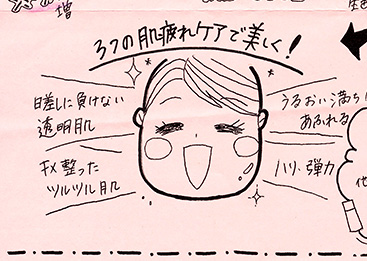 増
3つの肌疲れケアで美しく!
日差しに負けない
透明肌
キメ整った
ツルツル肌
うるおい満ち
あふれる
ハリ、弾力